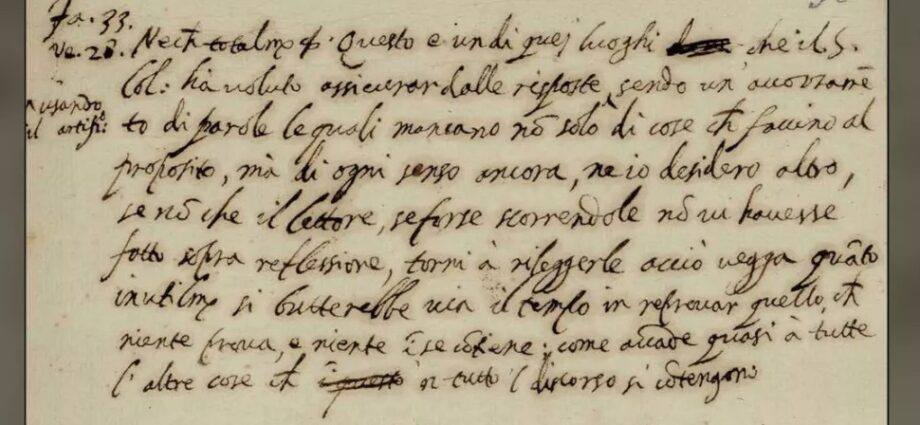 fa. 33.
Ve. 28. Nech̃ Questo è un di quej luoghi che il S.
Col: hà voluto assicurar dalle risposte, sendo un'
usando
il artifi:
to di parole le quali mancano nõ solo di cose ch̃ faccino al
proposito, mà di ogni senso ancora, ne io desidero altro,
se nõ che il lettore, se forse scorrendole nõ vi havesse
fatto sopra reflessione, torni à rileggerle acciò vegga quãto
si butterebbe via il tempo in reprovar quello, ch̃
niente prova, e niente ĩ se cõtiene: come accade quasi à tutte
l'altre cose ch̃ ĩ questo in tutto l discorso si cõtengono